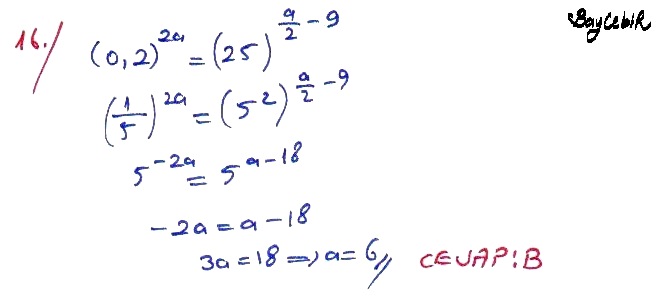 BayCebiR
16./ (0,2)^{2a} = (25)^{\frac{a}{2} - 9}
(\frac{1}{5})^{2a} = (5^2)^{\frac{a}{2} - 9}
5^{-2a} = 5^{a-18}
-2a = a-18
3a = 18 ⇒ a = 6// CEVAP:B